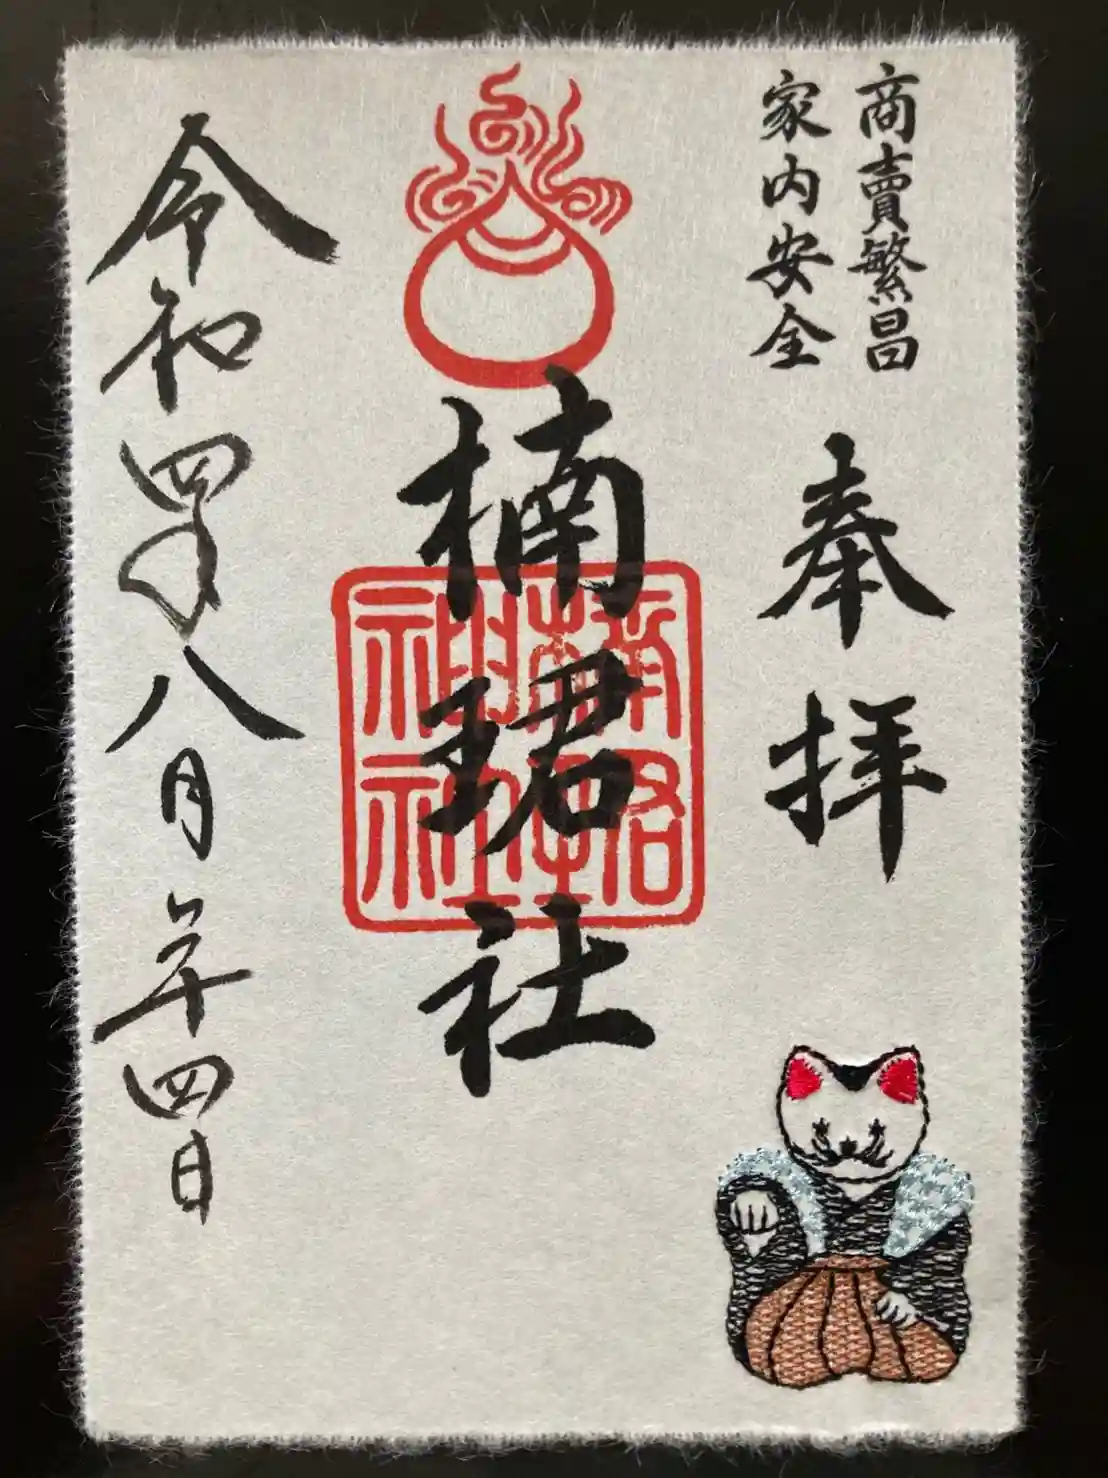 商賣繁昌
家内安全
奉拝
楠珺社
楠珺
神社
令和四年八月二十四日